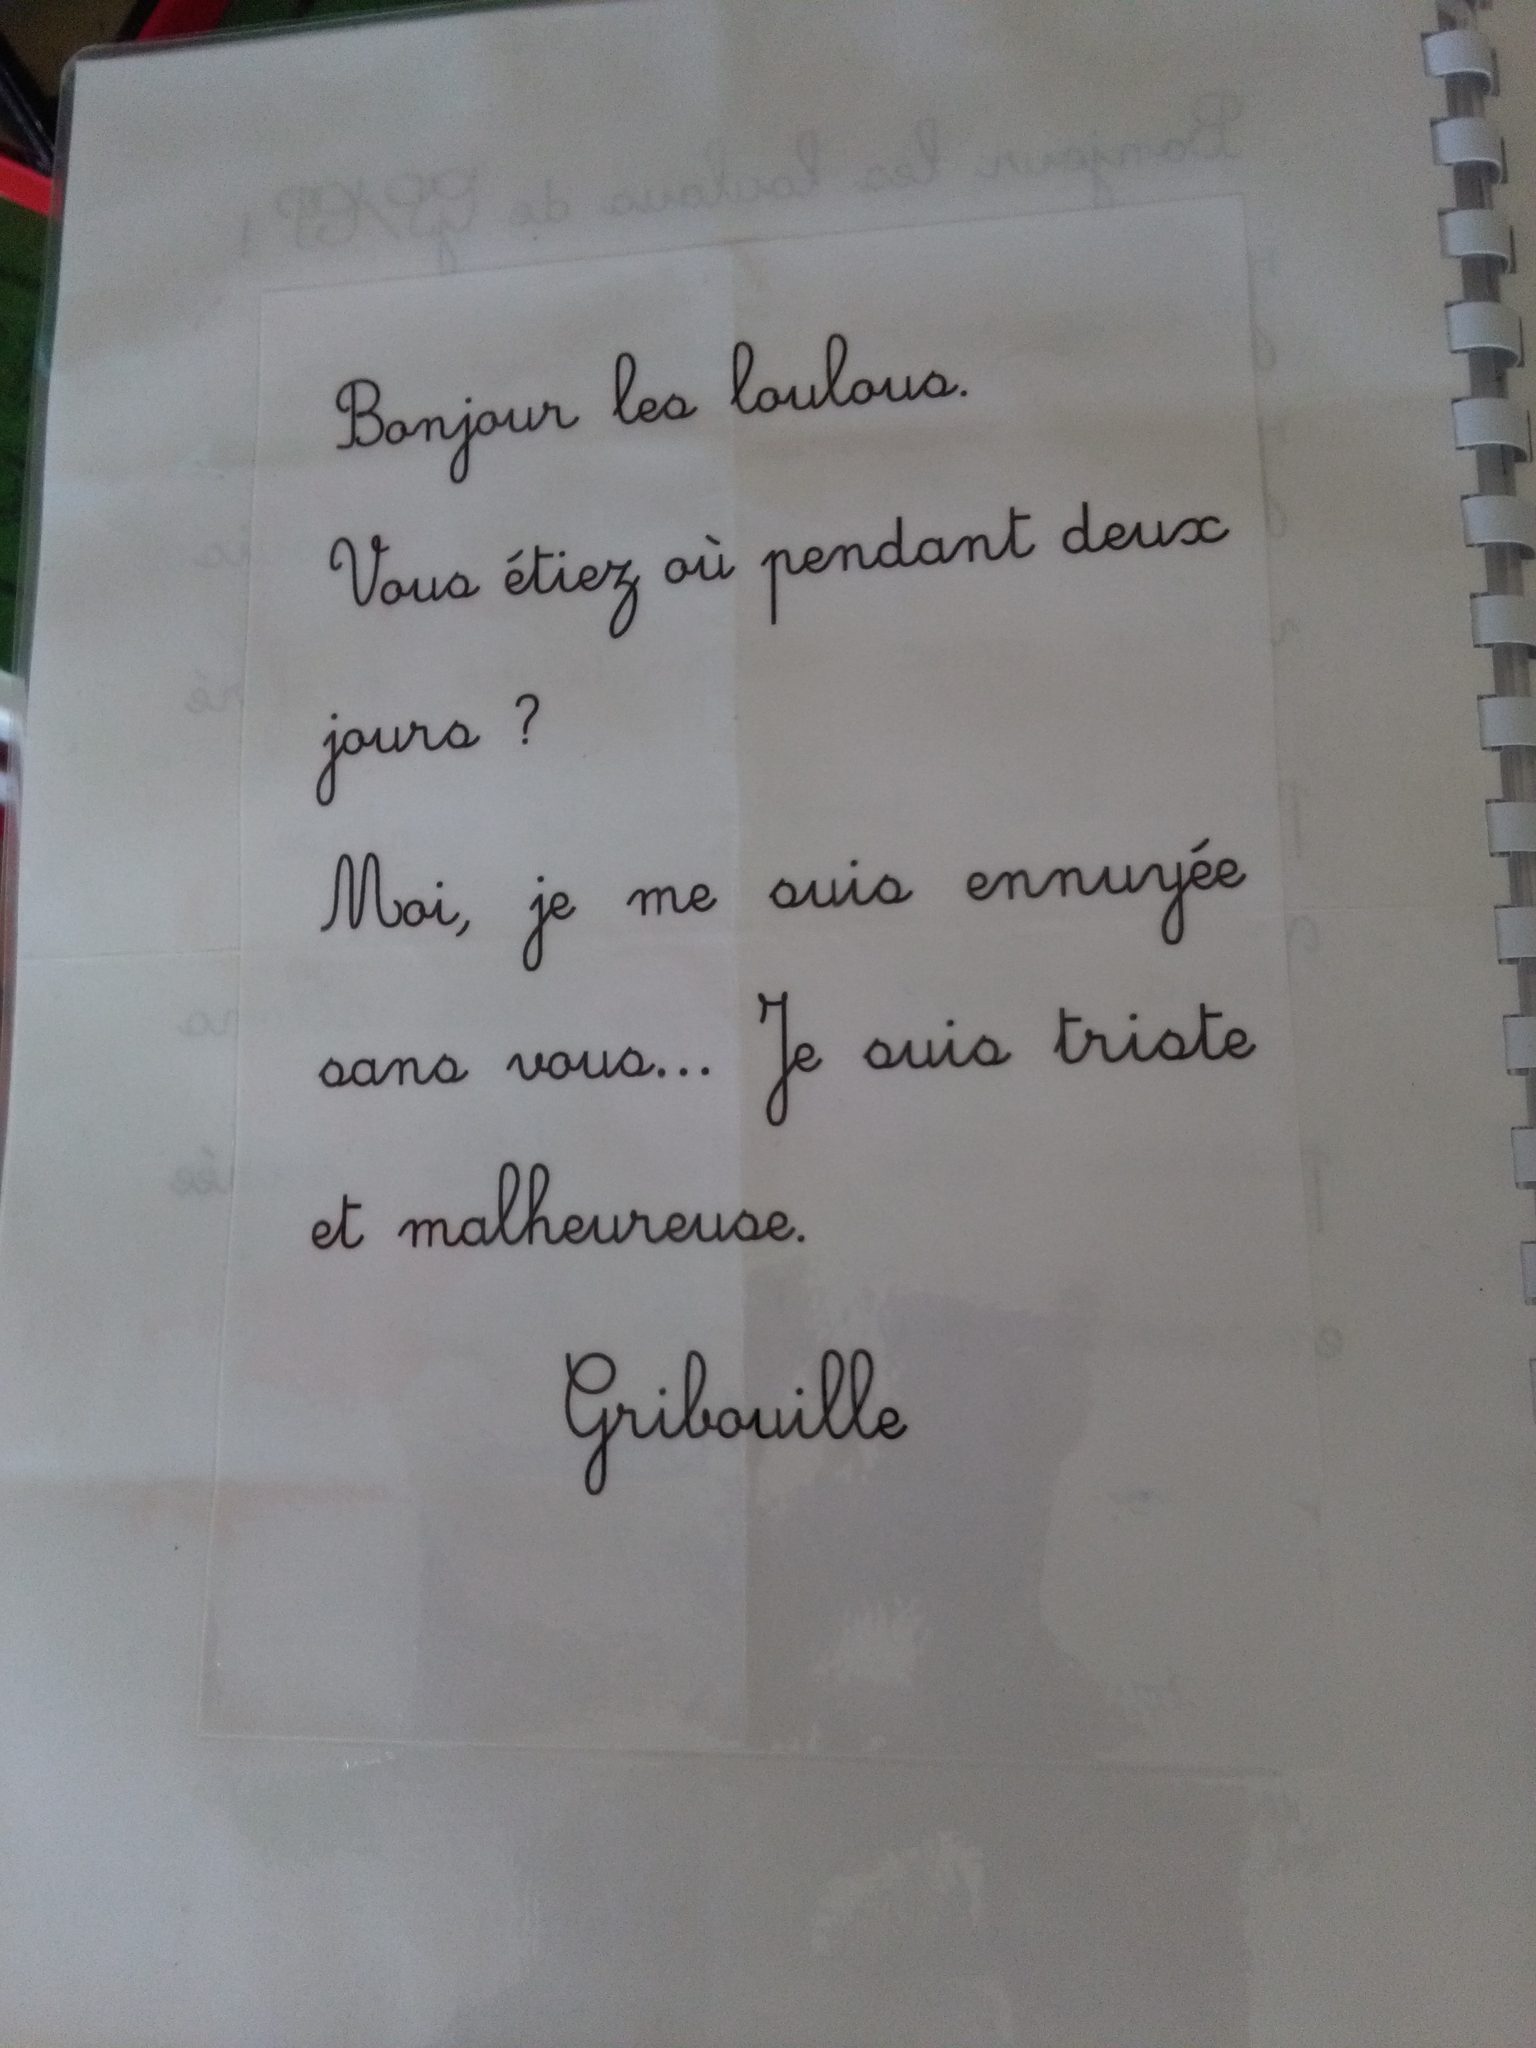 Bonjour les loulous.
Vous étiez où pendant deux
jours ?
Moi, je me suis ennuyée
sans vous... Je suis triste
et malheureuse.
Gribouille
Bonjour les loulous de GS/CP !